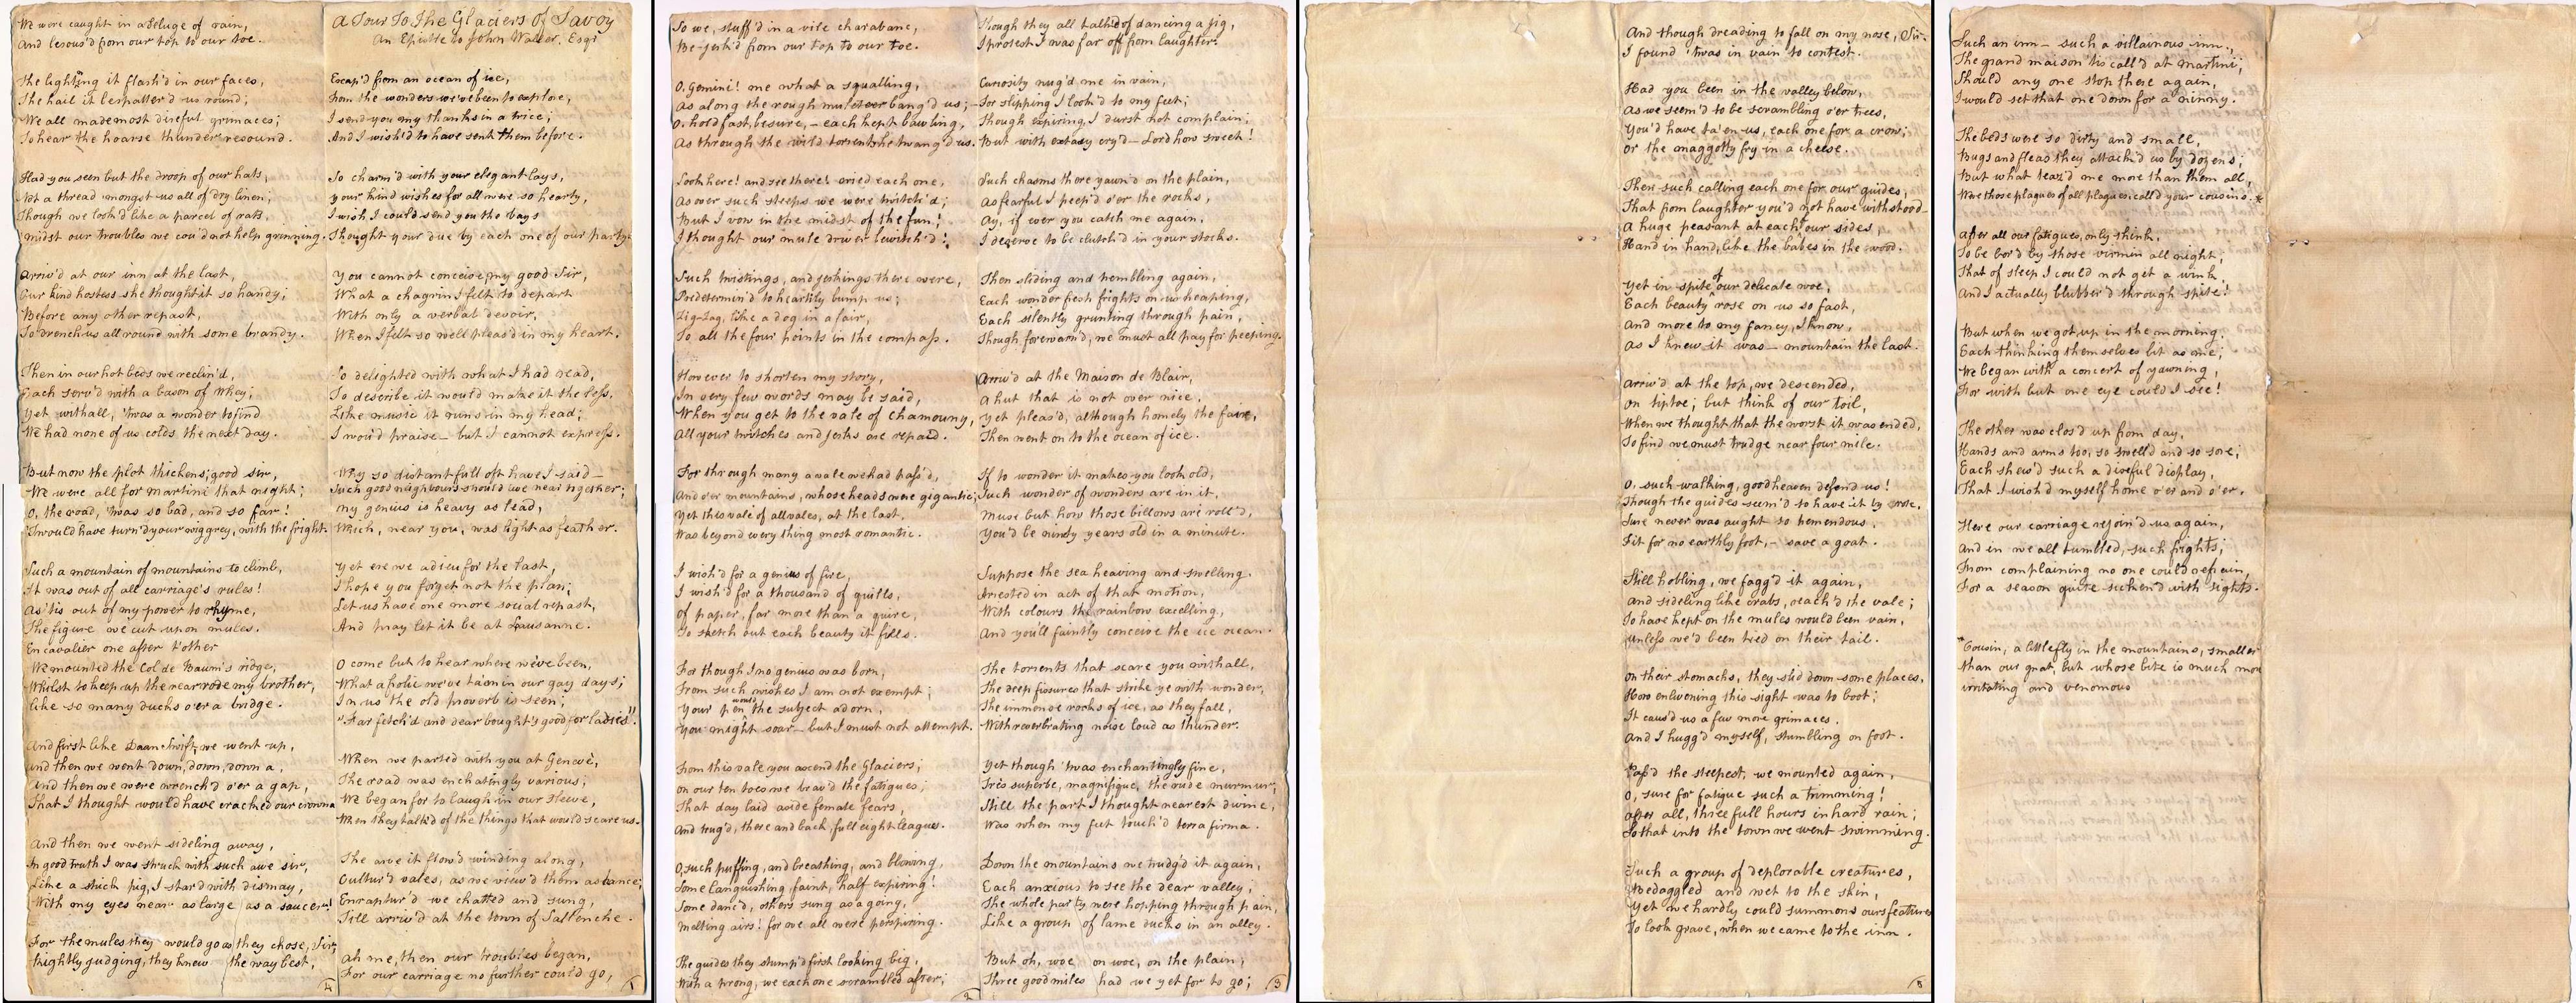 A Tour To The Glaciers Of Savoy
An Epistle to John Waller, Esqr
Escap'd from an ocean of ice,
From the wonders we've been to explore,
I send you my thanks in a trice;
And I wish'd to have sent them before.
So charm'd with your elegant lays,
your kind wishes for all were so hearty,
I wish I could send you the bays
Thought your due by each one of our party.
You cannot conceive, my good Sir,
What a chagrin I felt to depart
With only a verbal devoir,
When I felt so well pleas'd in my heart.
So delighted with what I had read,
To describe it would make it the less.
Like music it runs in my head;
I wou'd praise – but I cannot express.
Why so distant full oft have I said –
Such good neighbours should be near together;
my genius is heavy as lead,
Which, near you, was light as feather.
Yet ere we adieu for the last,
I hope you forget not the plan;
Let us have one more social repast,
And pray let it be at Lausanne.
O come but to hear where we've been,
What a frolic we've ta'en in our gay days;
In us the old proverb is seen;
"Far fetch'd and dear bought's good for ladies".
When we parted with you at Geneve,
The road was enchatingly various;
We began for to laugh in our sleeve,
When they talk'd of the things that would scare us.
The arve it flow'd winding along,
Cultur'd vales, as we view'd them askance;
Enraptur'd we chatted and sung,
Till arriv'd at the town of Sallenche.
ah me, then our troubles began,
For our carriage no further could go,
1
So we, stuff'd in a vile charabanc,
Be-jerk'd from our top to our toe.
O, Gemini! me what a squalling,
As along the rough muleteer bang'd us;
O, hold fast, be sure, – each kept bawling,
As through the wild torrents he twang'd us.
Look here! and see there! cried each one,
As over such steeps we were twitch'd;
But I vow in the midst of the fun!
I thought our mule driver bewitch'd!
Such twistings, and jerkings there were,
Predetermin'd to heartily bump us;
Zig-Zag, like a dog in a fair,
To all the four points in the compass.
However to shorten my story,
In very few words may be said,
When you get to the vale of Chamouny,
All your twitches and jerks are repaid.
For through many a vale we had pass'd,
And o'er mountains, whose heads were gigantic;
Yet this vale of all vales, at the last,
Was beyond every thing most romantic.
I wish'd for a genius of fire,
I wish'd for a thousand of quills,
of paper, far more than a quire,
To sketch out each beauty it fills.
For though I no genius was born,
From such wishes I am not exempt;
Your pen would the subject adorn,
You might soar – but I must not attempt.
From this vale you ascend the Glaciers;
on our ten toes we brav'd the fatigues;
That day laid aside female fears,
And trug'd, there and back, full eight leagues.
O, such puffing, and breathing, and blowing,
Some languishing, faint, half expiring!
Some danc'd, others sung as a going,
Melting airs! for we all were perspiring.
The guides they stump'd first looking big,
With a prong, we each one scrambled after;
2
Though they all talk'd of dancing a jig,
I protest I was far off from laughter.
Curiosity nug'd me in vain,
For slipping I look'd to my feet;
Though expiring, I durst not complain;
But with extasy cry'd – Lord how sweet!
Such chasms there yawn'd on the plain,
As fearful I peep'd o'er the rocks,
Ay, if ever you catch me again,
I deserve to be clutch'd in your stocks.
Then sliding and trembling again,
Each wonder fresh frights on us heaping,
Each silently grunting through pain,
Though forewarn'd, we must all pay for peeping.
Arriv'd at the Maison de Blair,
A hut that is not over nice,
Yet pleas'd, although homely the fare,
Then went on to the ocean of ice.
If to wonder it makes you look old,
Such wonder of wonders are in it,
Muse but how those billows are roll'd,
You'd be ninety years old in a minute.
Suppose the sea heaving and swelling
Arrested in act of that motion,
With colours the rainbow excelling,
And you'll faintly conceive the ice ocean.
The torrents that scare you withall,
The deep fissures that strike ye with wonder,
The immense rocks of ice, as they fall,
With reverbrating noise loud as thunder.
Yet though 'twas enchantingly fine,
Très superbe, magnifique, the rude murmur;
Still the part I thought nearest divine,
Was when my feet touch'd terra firma.
Down the mountains we trudg'd it again,
Each anxious to see the dear valley;
The whole party were hopping through pain,
Like a group of lame ducks in an alley.
But oh, woe on woe, on the plain,
Three good miles had we yet for to go;
3
We were caught in a deluge of rain,
And besous'd from our top to our toe.
The lightning it flash'd in our faces,
The hail it bespatter'd us round;
We all made most direful grimaces;
To hear the hoarse thunder resound.
Had you seen but the droop of our hats,
Not a thread mongst us all of dry linen;
Though we look'd like a parcel of rats,
midst our troubles we cou'd not help grinning.
Arriv'd at our inn at the last,
Our kind hostess she thought it so handy;
Before any other repast,
To drench us all round with some brandy.
Then in our hot beds we reclin'd,
Each serv'd with a bason of whey;
Yet withall, 'twas a wonder to find
We had none of us colds the next day.
But now the plot thickens, good sir,
We were all for Martini that night;
O, the road, 'twas so bad, and so far!
'Twould have turn'd your wig grey, with the fright.
Such a mountain of mountains to climb,
It was out of all carriage's rules!
As 'tis out of my power to rhyme,
The figure we cut upon mules.
En cavalier one after t'other
We mounted the Col de Baum's ridge,
Whilst to keep up the rear rode my brother,
Like so many ducks o'er a bridge.
And first like Daan Swift, we went up,
and then we went down, down, down a,
And then we were wrench'd o'er a gap,
That I thought would have cracked our crowna
And then we went sideling away,
In good truth I was struck with such awe sir,
Like a stuck pig, I star'd with dismay,
With my eyes near as large as a saucer!
For the mules they would go as they chose, Sir,
Rightly judging, they knew the way best,
4
And though dreading to fall on my nose, Sir,
I found 'twas in vain to contest.
Had you been in the valley below,
As we seem'd to be scrambling o'er trees,
You'd have ta'en us, each one for a crow;
Or the maggotty fry in a cheese.
Then such calling each one for our guides,
That from laughter you'd not have withstood
A huge peasant at each of our sides,
Hand in hand, like the babes in the wood.
Yet in spite of our delicate woe,
Each beauty rose on us so fast,
And more to my fancy, I know,
As I knew it was – mountain the last.
Arriv'd at the top, we descended,
On tiptoe; but think of our toil,
When we thought that the worst it was ended,
To find we must trudge near four mile.
O, such walking, good heaven defend us!
Though the guides seem'd to have it by rote,
Sure never was aught so tremendous,
Fit for no earthly foot, – save a goat.
Still hobling, we fagg'd it again,
and sideling like crabs, reach'd the vale;
To have kept on the mules would been vain,
Unless we'd been tied on their tail.
On their stomachs, they slid down some places,
How enlivening this sight was to boot;
It caus'd us a few more grimaces.
And I hugg'd myself, stumbling on foot.
Pass'd the steepest, we mounted again,
O, sure for fatigue such a trimming!
After all, three full hours in hard rain;
So that into the town we went swimming.
Such a group of deplorable creatures,
Bedaggled and wet to the skin,
Yet we hardly could summons ours features
To look grave, when we came to the inn.
5
Such an inn – such a villainous inn,
The grand maison 'tis call'd at Martini;
Should any one stop there again,
I would set that one down for a ninny.
The beds were so dirty and small,
Bugs and fleas they attack'd us by dozens;
But what teaz'd me more than them all,
Were those plagues of all plagues, call'd your cousins.*
After all our fatigues, only think,
To be bor'd by those virmin all night;
That of sleep I could not get a wink,
And I actually blubber'd through spite!
But when we got up in the morning
Each thinking themselves bit as me;
We began with a concert of yawning,
For with but one eye could I see!
The other was clos'd up from day,
Hands and arms too, so swell'd and so sore;
Each shew'd such a direful display,
That I wish'd myself home o'er and o'er.
Here our carriage rejoin'd us again,
And in we all tumbled, such frights;
From complaining no one could refrain,
For a season quite sicken'd with sights.
*Cousin, a little fly in the mountains, smaller
than our gnat, but whose bite is much more
irritating and venomous